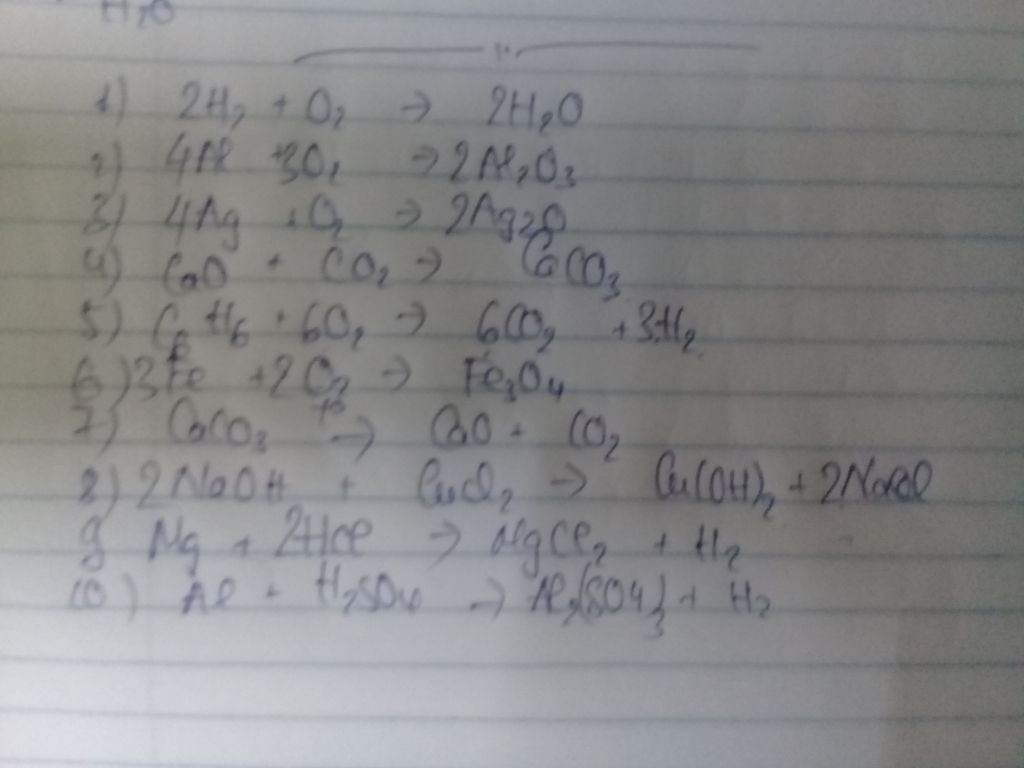 H2O
1) 2H2 + O2 → 2H2O
2) 4Al +3O2 → 2Al2O3
3) 4Ag + O2 → 2Ag2O
4) CaO + CO2 → CaCO3
5) C6H6 + 6O2 → 6CO2 + 3H2
6) 3Fe + 2O2 → Fe3O4
7) CaCO3 → CaO + CO2
8) 2NaOH + CuCl2 → Cu(OH)2 + 2NaCl
9 Mg + 2HCl → MgCl2 + H2
10) Al + H2SO4 → Al2(SO4)3 + H2